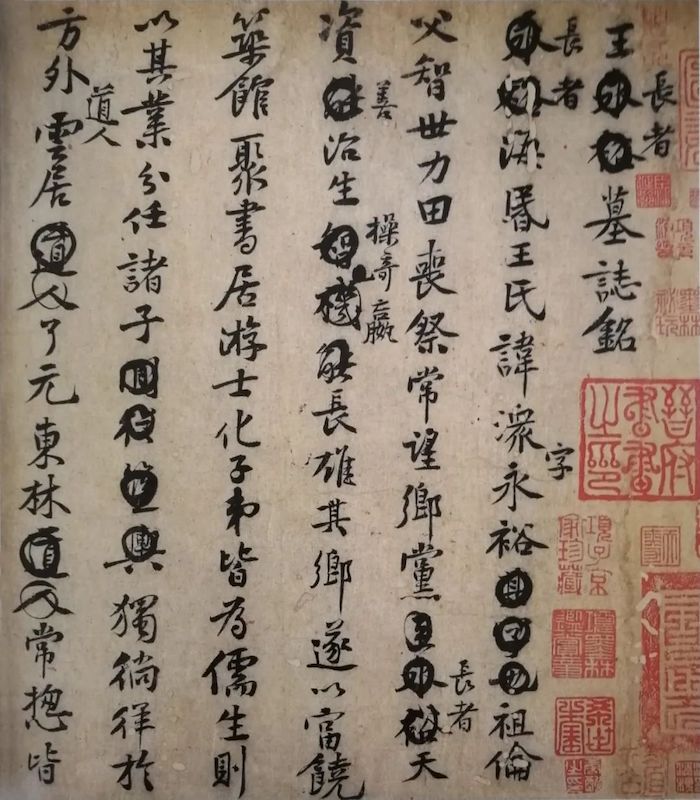 王長者墓誌銘
長者海昬王氏諱潨字永裕祖倫
父智世力田喪祭常望鄉黨長者天
資善治生操奇贏長雄其鄉遂以富饒
築館聚書居游士化子弟皆為儒生則
以其業分任諸子獨徜徉於
方外道人雲居了元東林常揔皆